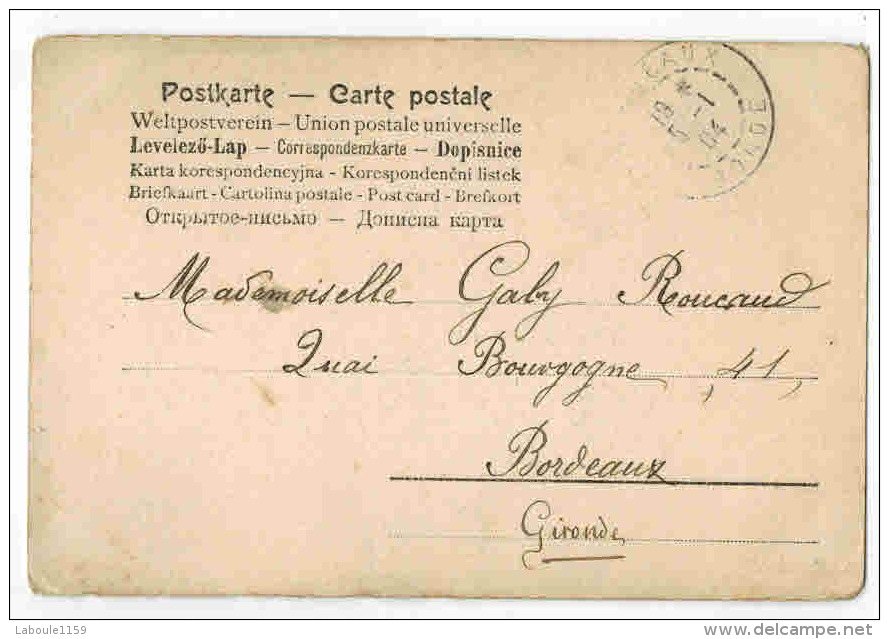 Postkarte — Carte postale
Weltpostverein – Union postale universelle
Levelező-Lap – Correspondenzkarte – Dopisnice
Karta korespondencyjna - Korespondenční listek
Briefkaart - Cartolina postale - Post card - Brefkort
Открытое-письмо — Дописна карта
Mademoiselle Gaby Roucaud
Quai Bourgogne, 41,
Bordeaux
Gironde
Laboule1159
delcampe.net